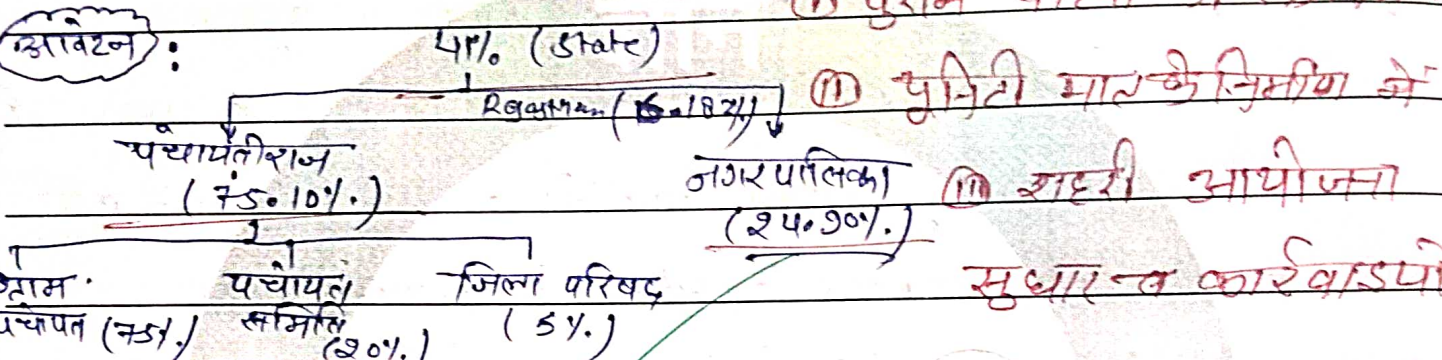 आवंटन :
41% (State)
Rajasthan (6.182%)
पंचायतीराज
(75.10%.)
नगरपालिका
(24.90%.)
ग्राम पंचायत (75%.)
पंचायत समिति (20%.)
जिला परिषद
(5%.)
(ii) यूनिटी माल के निर्माण में
(iii) शहरी आयोजना
सुधार व कार्रवाइयो